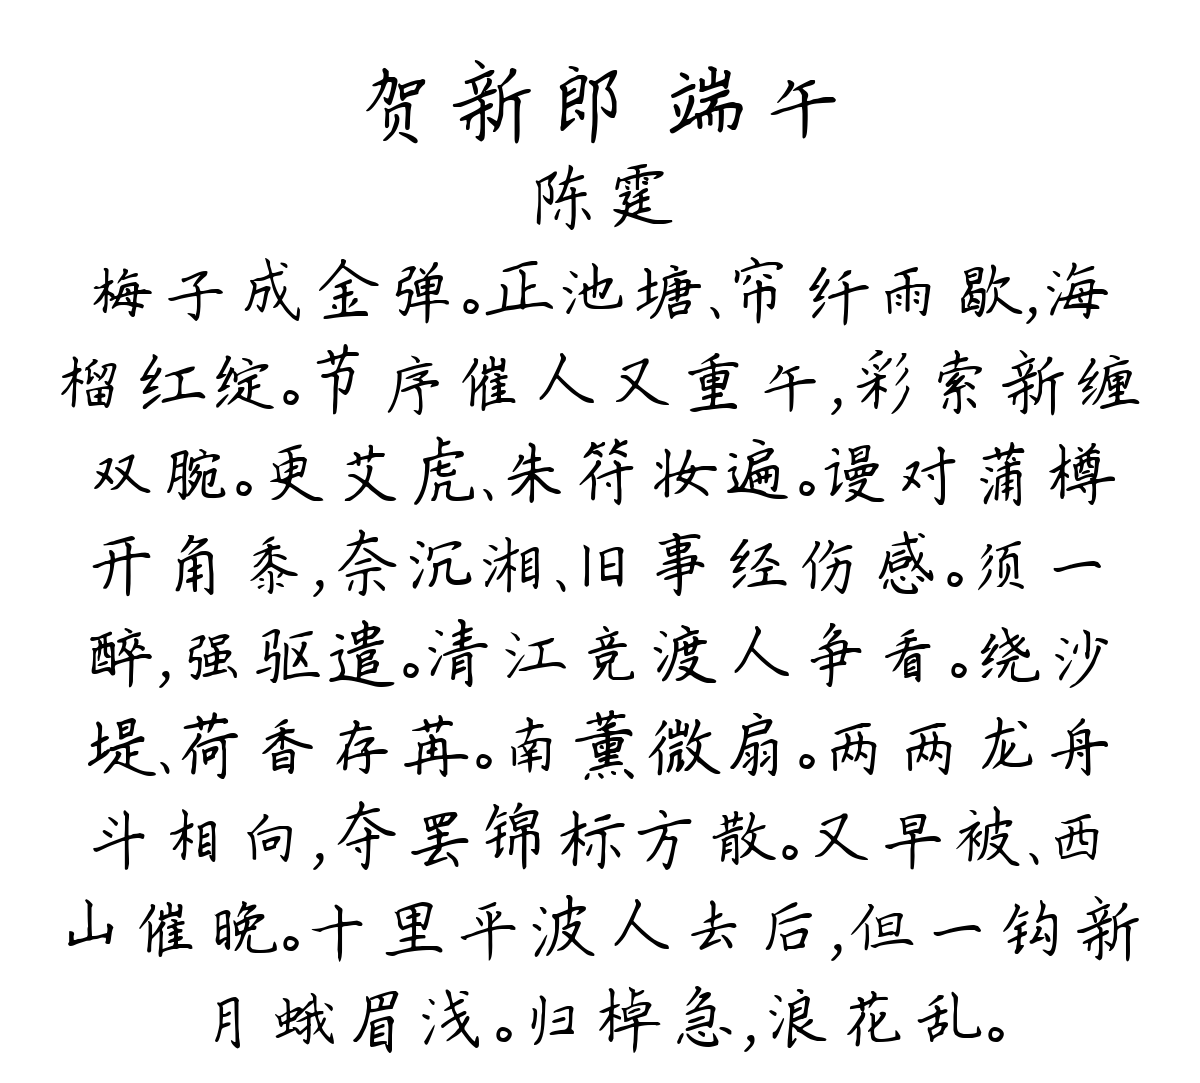 贺新郎 端午
陈霆
梅子成金弹。正池塘、帘纤雨歇,海
榴红绽。节序催人又重午,彩索新缠
双腕。更艾虎、朱符妆遍。谩对蒲樽
开角黍,奈沉湘、旧事经伤感。须一
醉,强驱遣。清江竞渡人争看。绕沙
堤、荷香存苒。南薰微扇。两两龙舟
斗相向,夺罢锦标方散。又早被、西
山催晚。十里平波人去后,但一钩新
月蛾眉浅。归棹急,浪花乱。